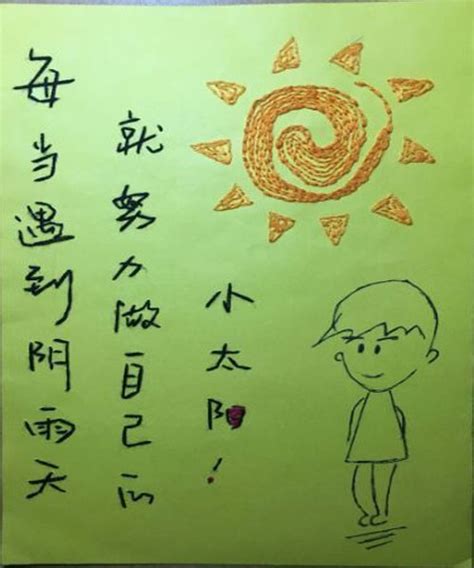 每当遇到阴雨天
就努力做自己的
小太阳！